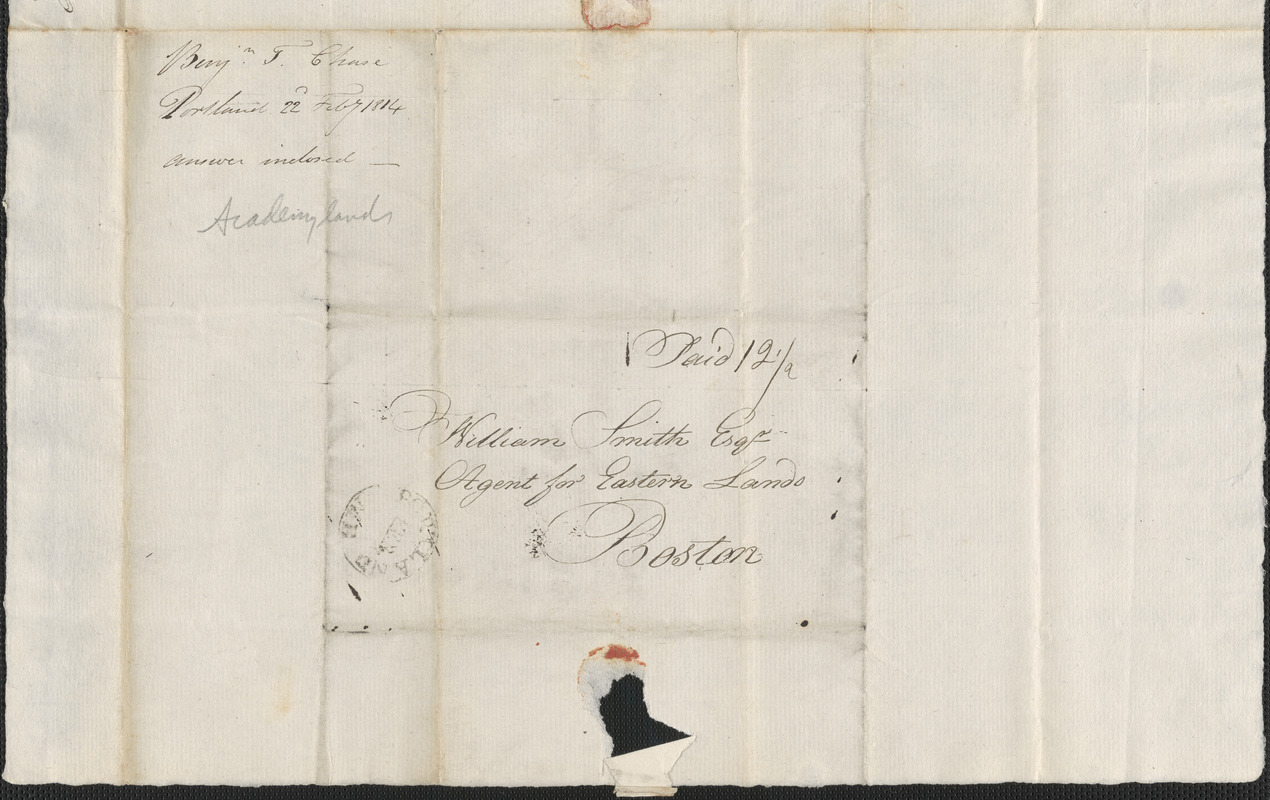 Benjn T. Chase
Portland 22d Feby 1814
answer inclosed —
Academy lands
Paid 12 1/2
William Smith Esqr
Agent for Eastern Lands
Boston
PORTLAND
FEB